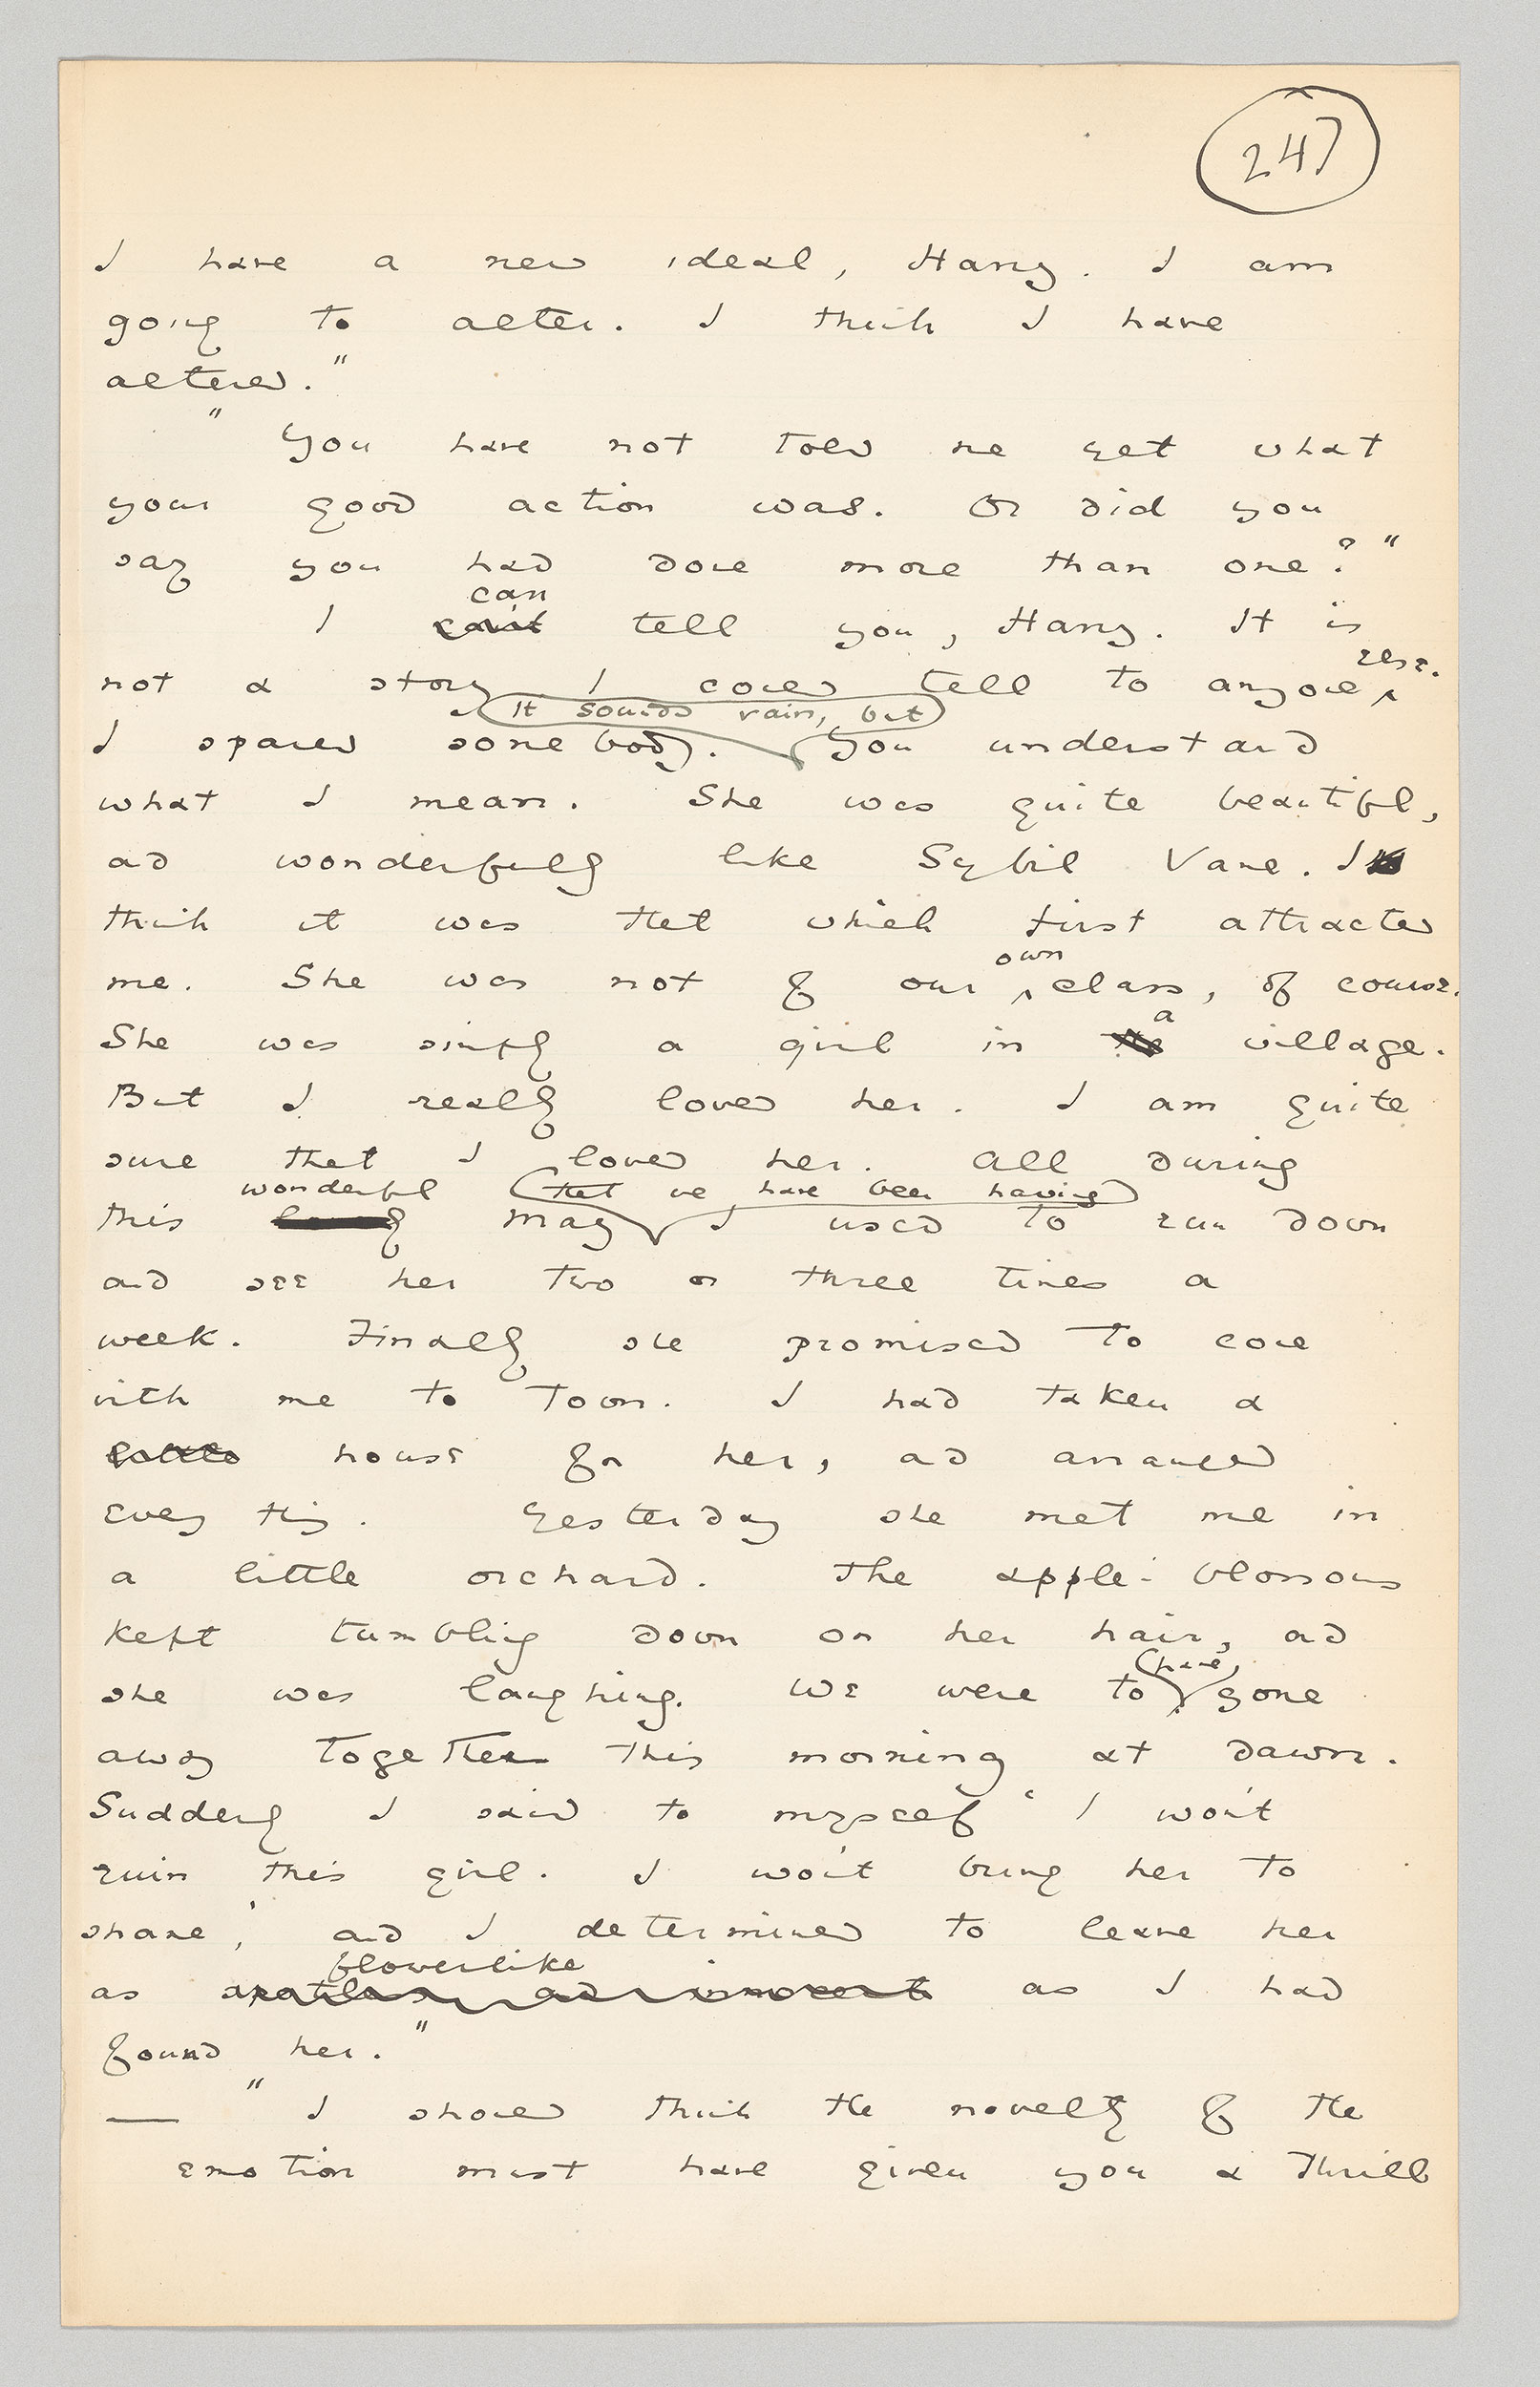 247
I have a new ideal, Harry. I am
going to alter. I think I have
altered."
"You have not told me yet what
your good action was. Or did you
say you had done more than one?"
can
I can't tell you, Harry. It is
else.
not a story I could tell to anyone
It sounds vain, but
I spared somebody. You understand
what I mean. She was quite beautiful,
and wonderfully like Sybil Vane. I
think it was that which first attracted
own
me. She was not of our class, of course.
a
She was simply a girl in the village.
But I really loved her. I am quite
sure that I loved her. All during
wonderful that we have been having
this May I used to run down
and see her two or three times a
week. Finally she promised to come
with me to town. I had taken a
little house for her, and arranged
everything. Yesterday she met me in
a little orchard. The apple-blossoms
kept tumbling down on her hair, and
have
she was laughing. We were to gone
away together this morning at dawn.
Suddenly I said to myself 'I won't
ruin this girl. I won't bring her to
shame,' and I determined to leave her
flowerlike
as spotless and innocent as I had
found her."
— "I should think the novelty of the
emotion must have given you a thrill